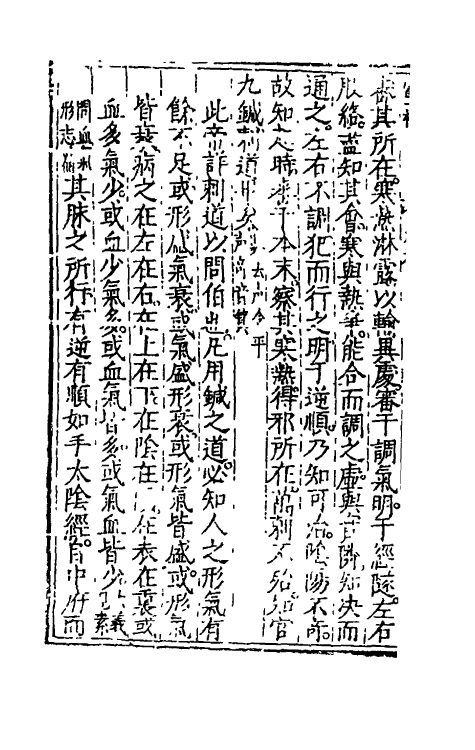 其所在寒熱淋露以輸異處審于調氣明于經隧左右
肢絡盡知其會寒與熱爭能合而調之虛與實鄰知決而
通之左右不調犯而行之明于逆順乃知可治陰陽不奇
故知起時審于本末察其寒熱得邪所在萬刺不殆知官
九鍼刺道畢矣
此章詳刺道以問伯也凡用鍼之道必知人之形氣有
餘不足或形盛氣衰或氣盛形衰或形氣皆盛或形氣
皆衰病之在左在右在上在下在陰在在表在裏或
血多氣少或血少氣多或血氣皆多或氣血皆少素
問血形志其脉之所行有逆有順如手太陰經自中府而